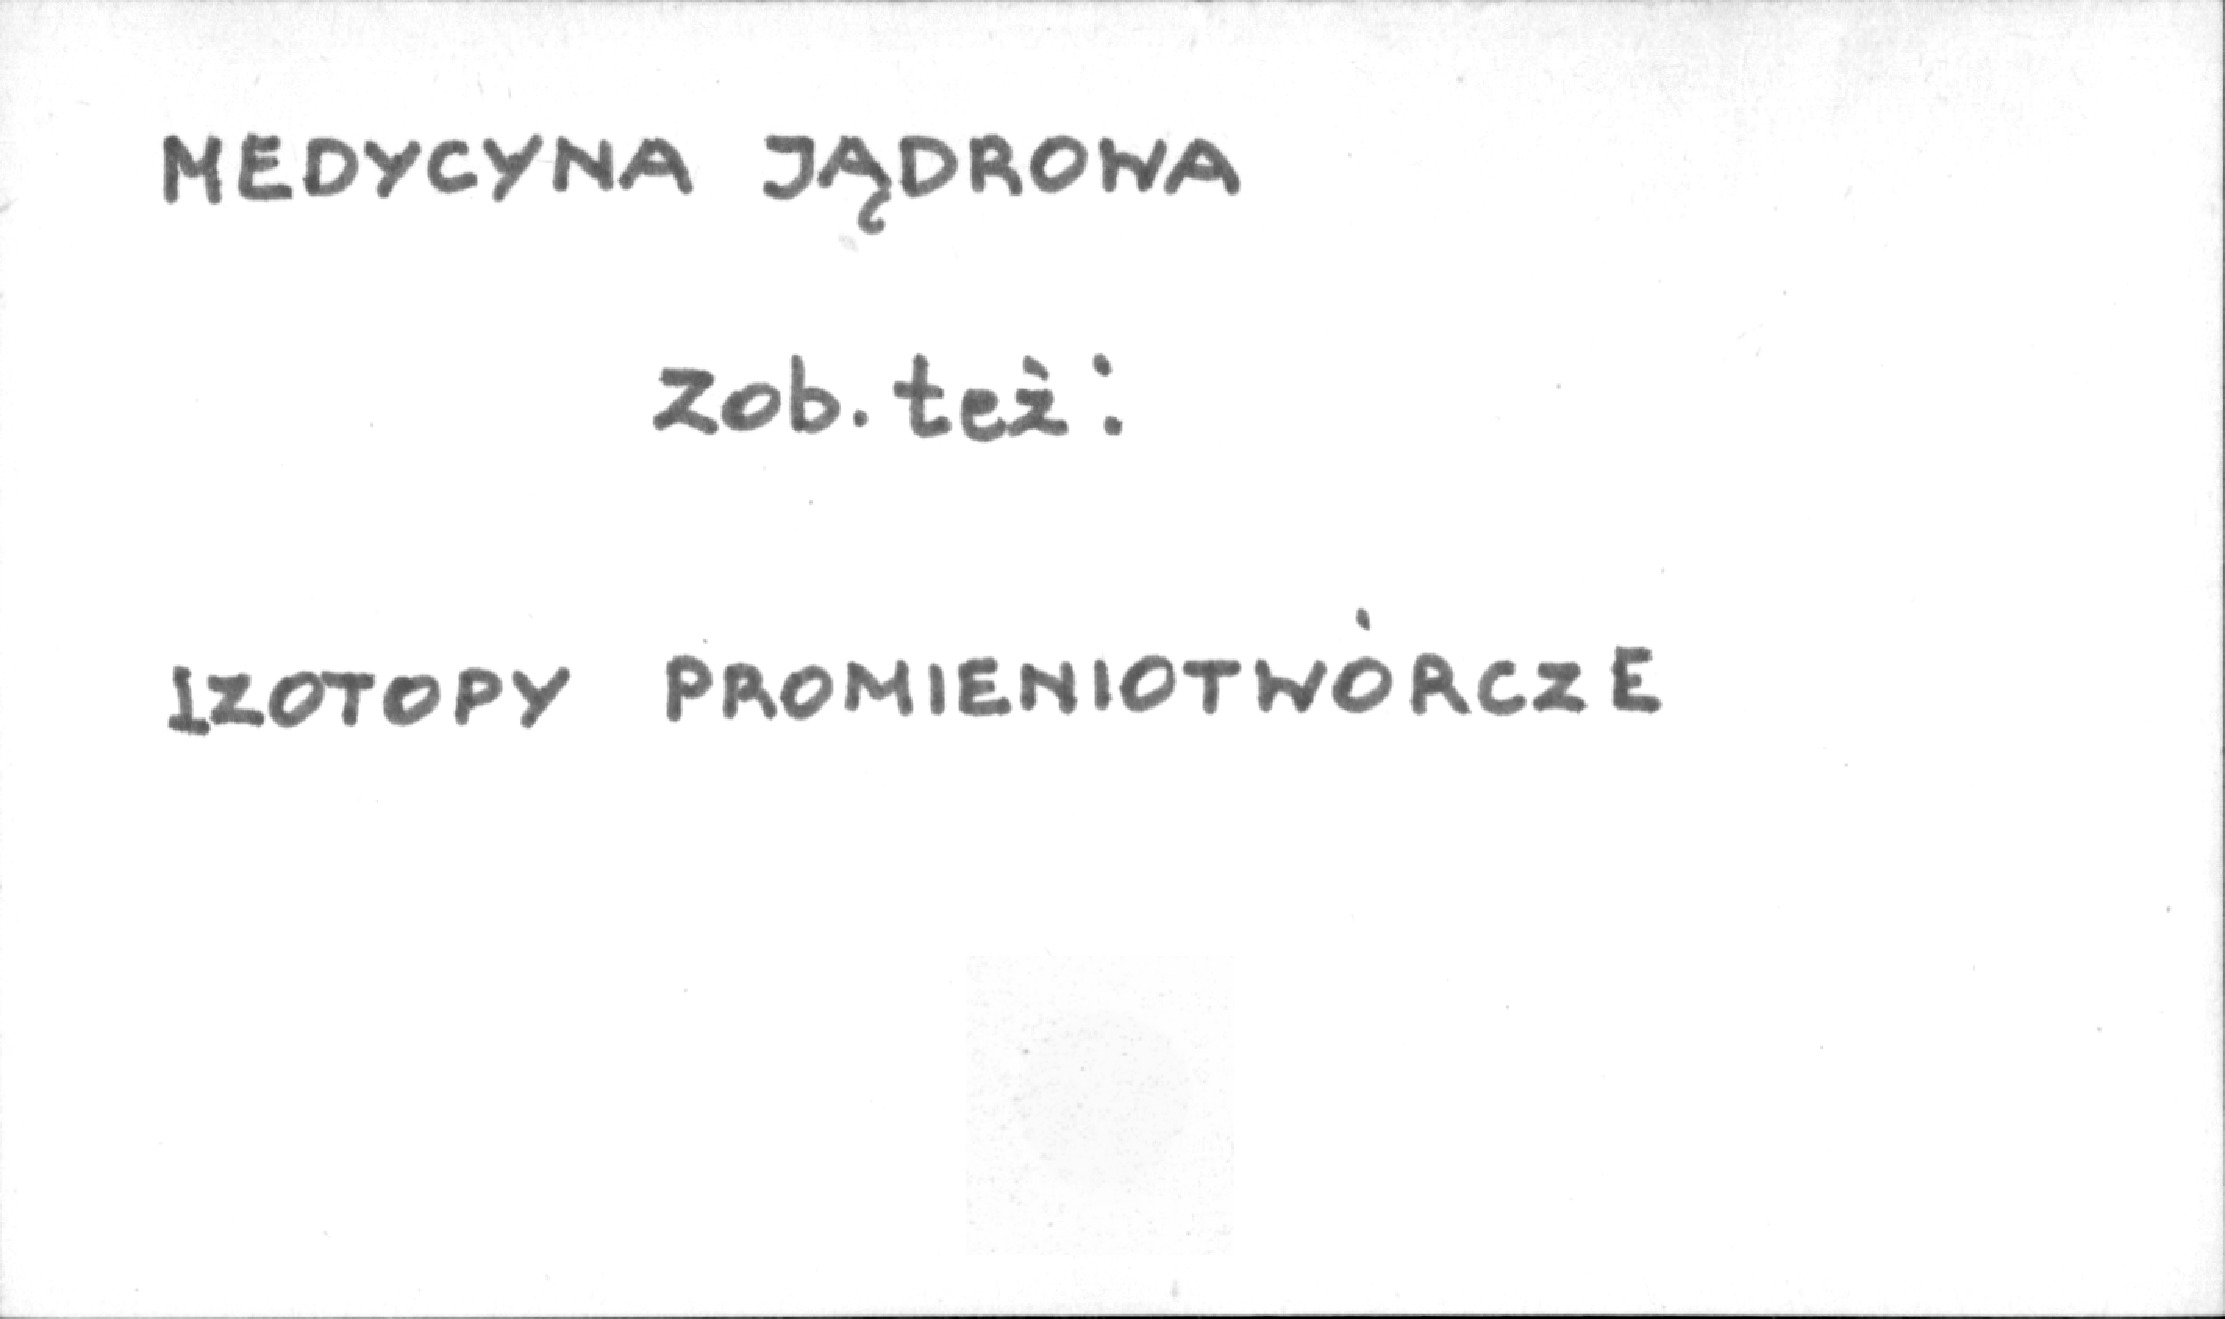 MEDYCYNA JĄDROWA
Zob. też:
IZOTOPY PROMIENIOTWÓRCZE